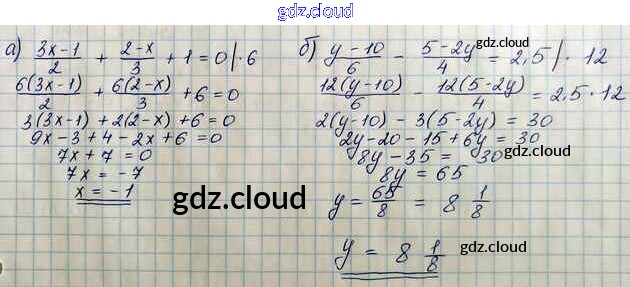 gdz.cloud
а) (3x-1)/2 + (2-x)/3 + 1 = 0 |·6
6(3x-1)/2 + 6(2-x)/3 + 6 = 0
3(3x-1)+2(2-x)+6=0
9x-3+4-2x+6=0
7x+7=0
7x = -7
x = -1
gdz.cloud
б) (y-10)/6 - (5-2y)/4 = 2,5 |· 12
gdz.cloud
12(y-10)/6 - 12(5-2y)/4 = 2,5·12
2(y-10) - 3(5-2y) = 30
2y-20-15+6y = 30
8y-35 = 30
8y = 65
gdz.cloud
y = 65/8 = 8 1/8
y = 8 1/8
gdz.cloud